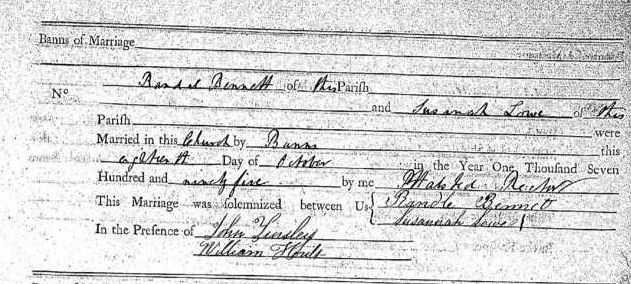 Banns of Marriage
Randel Bennett of this Parish
No
and Susanah Lowe of this
Parish were
Married in this Church by Banns this
eighteenth Day of October in the Year One Thousand Seven
Hundred and ninety five by me Rector
This Marriage was solemnized between Us { Randle Bennett
Susannah Lowe
In the Presence of John Tinsley
William